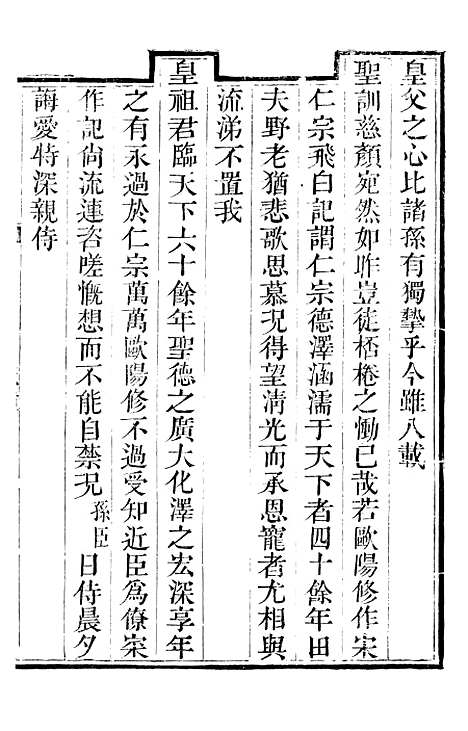 皇父之心比諸孫有獨摯乎今雖八載
聖訓慈顏宛然如昨豈徒桮棬之慟已哉若歐陽修作宋
仁宗飛白記謂仁宗德澤涵濡于天下者四十餘年田
夫野老猶悲歌思慕况得望淸光而承恩寵者尤相與
流涕不置我
皇祖君臨天下六十餘年聖德之廣大化澤之宏深享年
之有永過於仁宗萬萬歐陽修不過受知近臣爲僚寀
作記尙流連咨嗟慨想而不能自禁况孫臣日侍晨夕
誨愛特深親侍